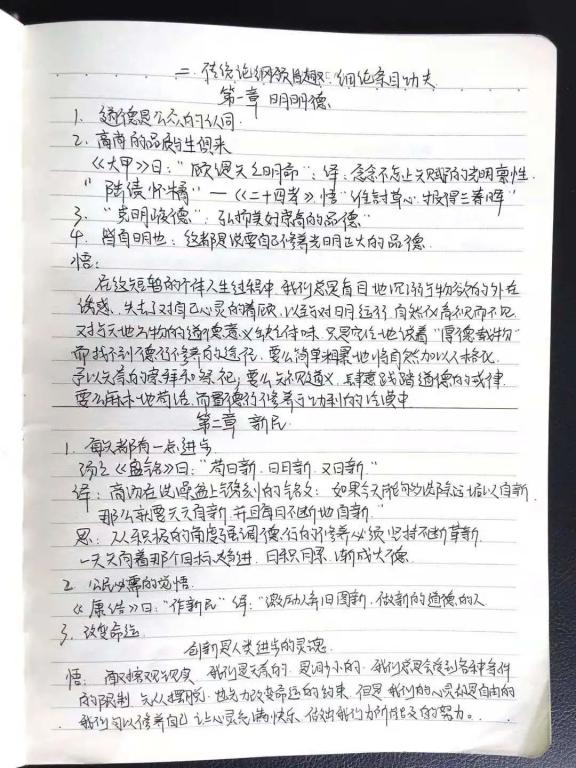 二、传统论纲领旨趣、细绝条目功夫
第一章 明明德
1、道德是公众的认同
2、高尚的品质与生俱来
《大甲》曰:"顾諟天之明命":译:念念不忘上天赋的光明禀性.
"陆绩怀橘"—《二十四孝》悟"谁言寸草心·报得三春晖"
3、"克明峻德":弘扬美好崇高的品德"
4、皆自明也:这都是说要自己修养光明正大的品德.
悟:
在这短暂的个体人生过程中.我们总是盲目地沉溺于物欲的外在
诱惑.失去了对自己心灵的清欣.以至对日月运行.自然仪节视而不见
对天地万物的道德意义缺体味.只是空泛地说着"厚德载物"
而找不到德行修养的途径.要么简单粗暴地将自然加以人格化.
予以无聊的崇拜和祭祀;要么无视道义.肆意践踏道德的戒律.
要么麻木地苟活.而置德行修养于功利的冷漠中
第二章 新民
1、每天都有一点进步
汤之《盘铭》曰:"苟日新.日日新.又日新."
译:商汤在洗澡盆上镌刻的铭文:如果今天能够洗除污垢以自新.
那么就要天天自新.并且每日不断地自新.
思:从积极的角度强调德行的修养必须坚持不断革新.
一天天向着那个目标趋进.日积月累.渐成大德.
2、公民必需的觉悟.
《康诰》曰:"作新民"译:"激励人弃旧图新.做新的道德的人
3、改变命运
创新是人类进步的灵魂.
悟:面对客观现实.我们是无奈的.是渺小的.我们总是会受到各种条件
的限制.无从摆脱.也无力改变命运的约束.但是我们的心灵却是自由的
我们可以修养自己.让心灵充满快乐.做出我们力所能及的努力。